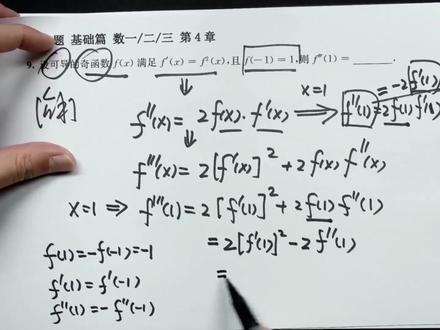 题 基础篇 数一/二/三 第4章
9. 设可导的奇函数 f(x) 满足 f'(x) = f²(x),且 f(-1) = 1,则 f'''(1) = ______.
x=1 = -2 f'(1)
f''(x) = 2f(x)·f'(x) ⟹ f''(1) = 2f(1) f'(1)
f'''(x) = 2[f'(x)]² + 2f(x) f''(x)
x=1 ⇒ f'''(1) = 2[f'(1)]² + 2f(1) f''(1)
f(1) = -f(-1) = -1 = 2[f'(1)]² - 2f''(1)
f'(1) = f'(-1) =
f''(1) = -f''(-1)